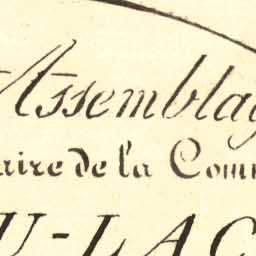 Assemblag
aire de la Com
U-LAC